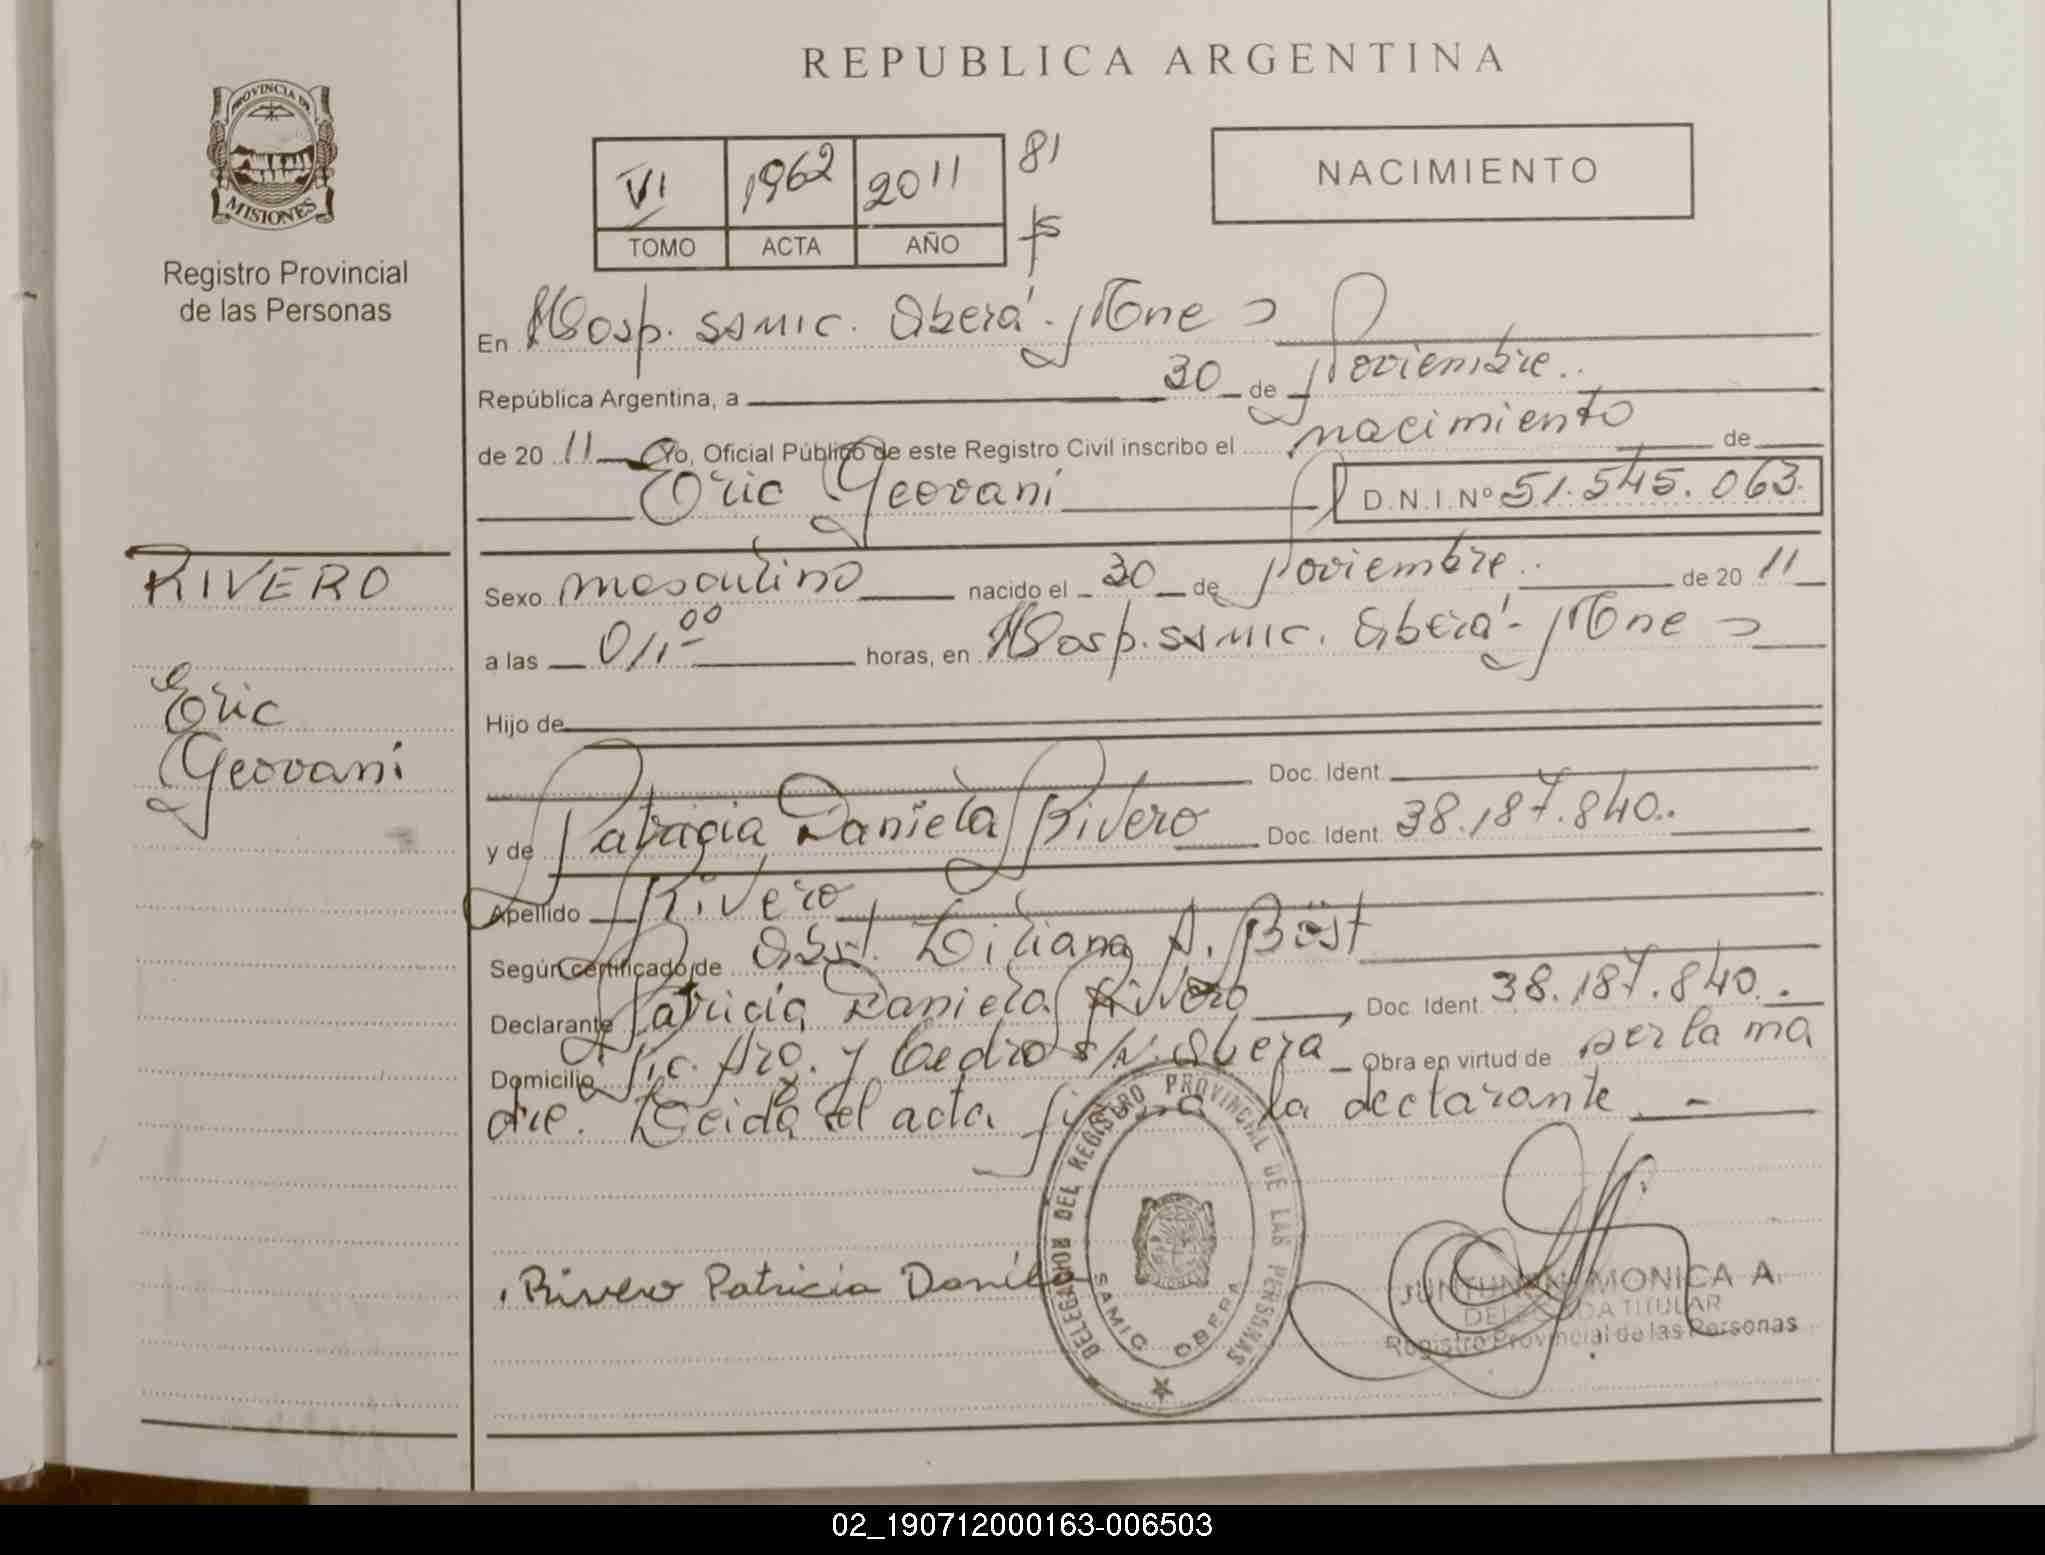 REPUBLICA ARGENTINA
PROVINCIA DE
MISIONES
Registro Provincial
de las Personas
VI 1962 2011 81
TOMO ACTA AÑO
NACIMIENTO
En Hosp. SAMIC. Oberá - Mnes
República Argentina, a 30 de Noviembre..
de 20 11 Yo, Oficial Público de este Registro Civil inscribo el nacimiento de
Eric Geovani D.N.I. Nº 51.545.063.
RIVERO
Eric
Geovani
Sexo masculino nacido el 30 de Noviembre.. de 20 11
a las 01,00 horas, en Hosp. SAMIC. Oberá - Mnes
Hijo de
Doc. Ident.
y de Patricia Daniela Rivero Doc. Ident. 38.187.840..
Apellido Rivero
Según certificado de Obst. Liliana A. Böst
Declarante Patricia Daniela Rivero Doc. Ident. 38.187.840..
Domicilio Pic. Aro. y Cedro s/n. Obera Obra en virtud de ser la ma
dre. Leida el acta firma la declarante
DELEGACION DEL REGISTRO PROVINCIAL DE LAS PERSONAS
SAMIC OBERA
Rivero Patricia Daniela
JUNTUNEN MONICA A.
DELEGADA TITULAR
Registro Provincial de las Personas
02_190712000163-006503